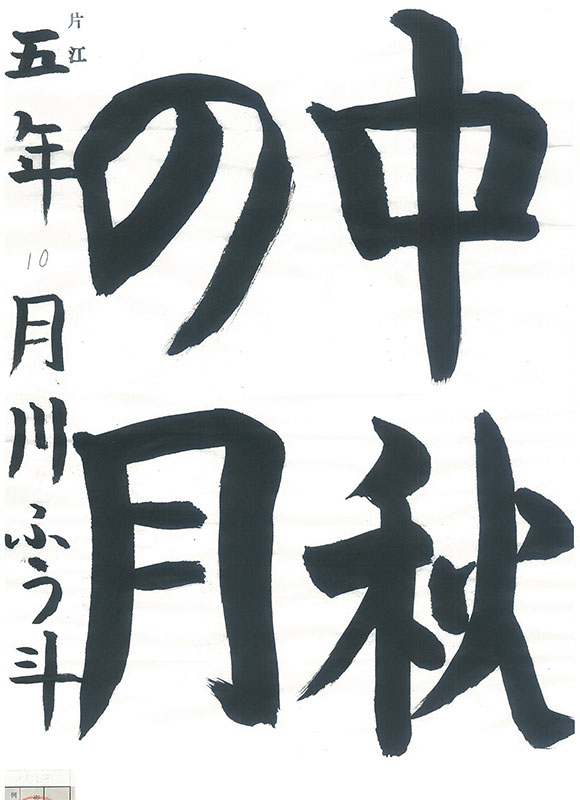 中秋
の月
片江
五年 10 月川ふう斗